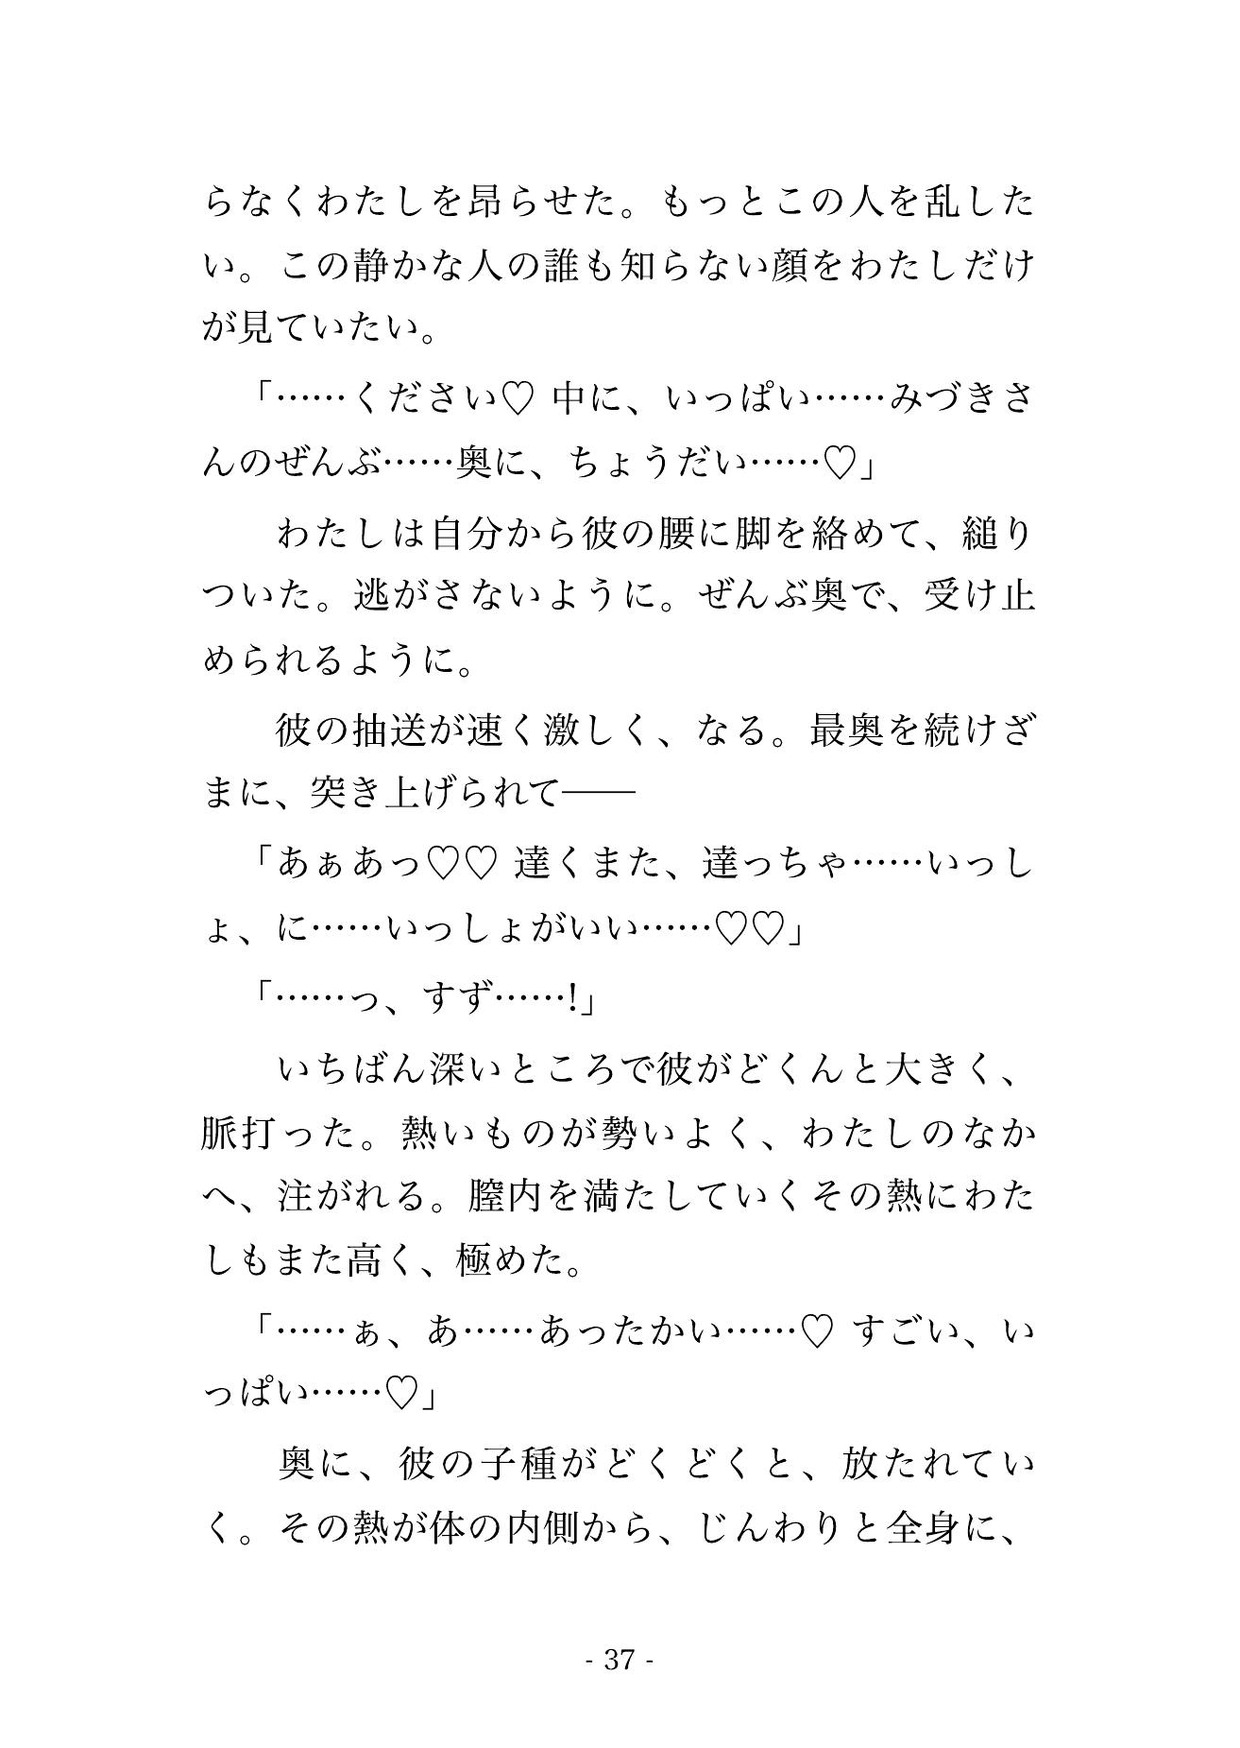 らなくわたしを昂らせた。もっとこの人を乱した
い。この静かな人の誰も知らない顔をわたしだけ
が見ていたい。
「……ください♡ 中に、いっぱい……みづきさ
んのぜんぶ……奥に、ちょうだい……♡」
わたしは自分から彼の腰に脚を絡めて、縋り
ついた。逃がさないように。ぜんぶ奥で、受け止
められるように。
彼の抽送が速く激しく、なる。最奥を続けざ
まに、突き上げられて――
「あぁあっ♡♡ 達くまた、達っちゃ……いっし
ょ、に……いっしょがいい……♡♡」
「……っ、すず……!」
いちばん深いところで彼がどくんと大きく、
脈打った。熱いものが勢いよく、わたしのなか
へ、注がれる。膣内を満たしていくその熱にわた
しもまた高く、極めた。
「……ぁ、あ……あったかい……♡ すごい、い
っぱい……♡」
奥に、彼の子種がどくどくと、放たれてい
く。その熱が体の内側から、じんわりと全身に、
- 37 -